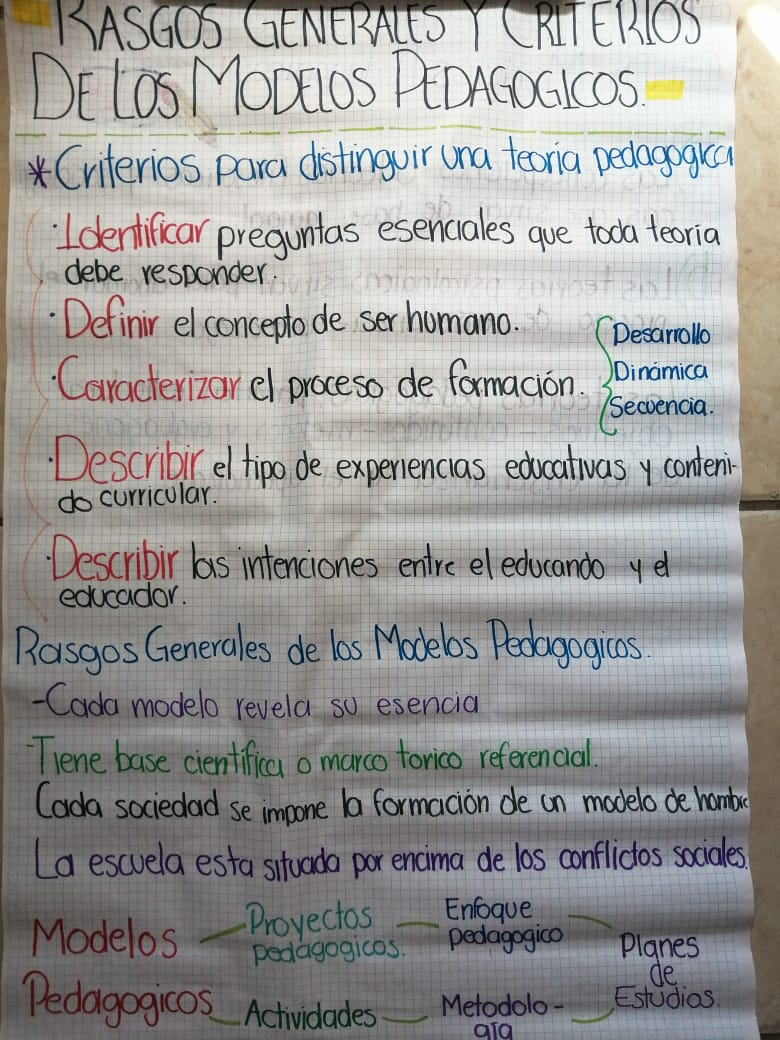 RASGOS GENERALES Y CRITERIOS
DE LOS MODELOS PEDAGOGICOS.
*Criterios para distinguir una teoría pedagogica
·Identificar preguntas esenciales que toda teoría
debe responder.
·Definir el concepto de ser humano.
·Caracterizar el proceso de formación.
Desarrollo
Dinámica
Secuencia.
·Describir el tipo de experiencias educativas y conteni-
do curricular.
·Describir las intenciones entre el educando y el
educador.
Rasgos Generales de los Modelos Pedagogicos.
-Cada modelo revela su esencia
-Tiene base cientifica o marco torico referencial.
Cada sociedad se impone la formación de un modelo de hombre
La escuela esta situada por encima de los conflictos sociales.
Modelos
Pedagogicos
Proyectos
pedagogicos.
Enfoque
pedagogico
Actividades
Metodolo-
gia
Planes
de
Estudios.